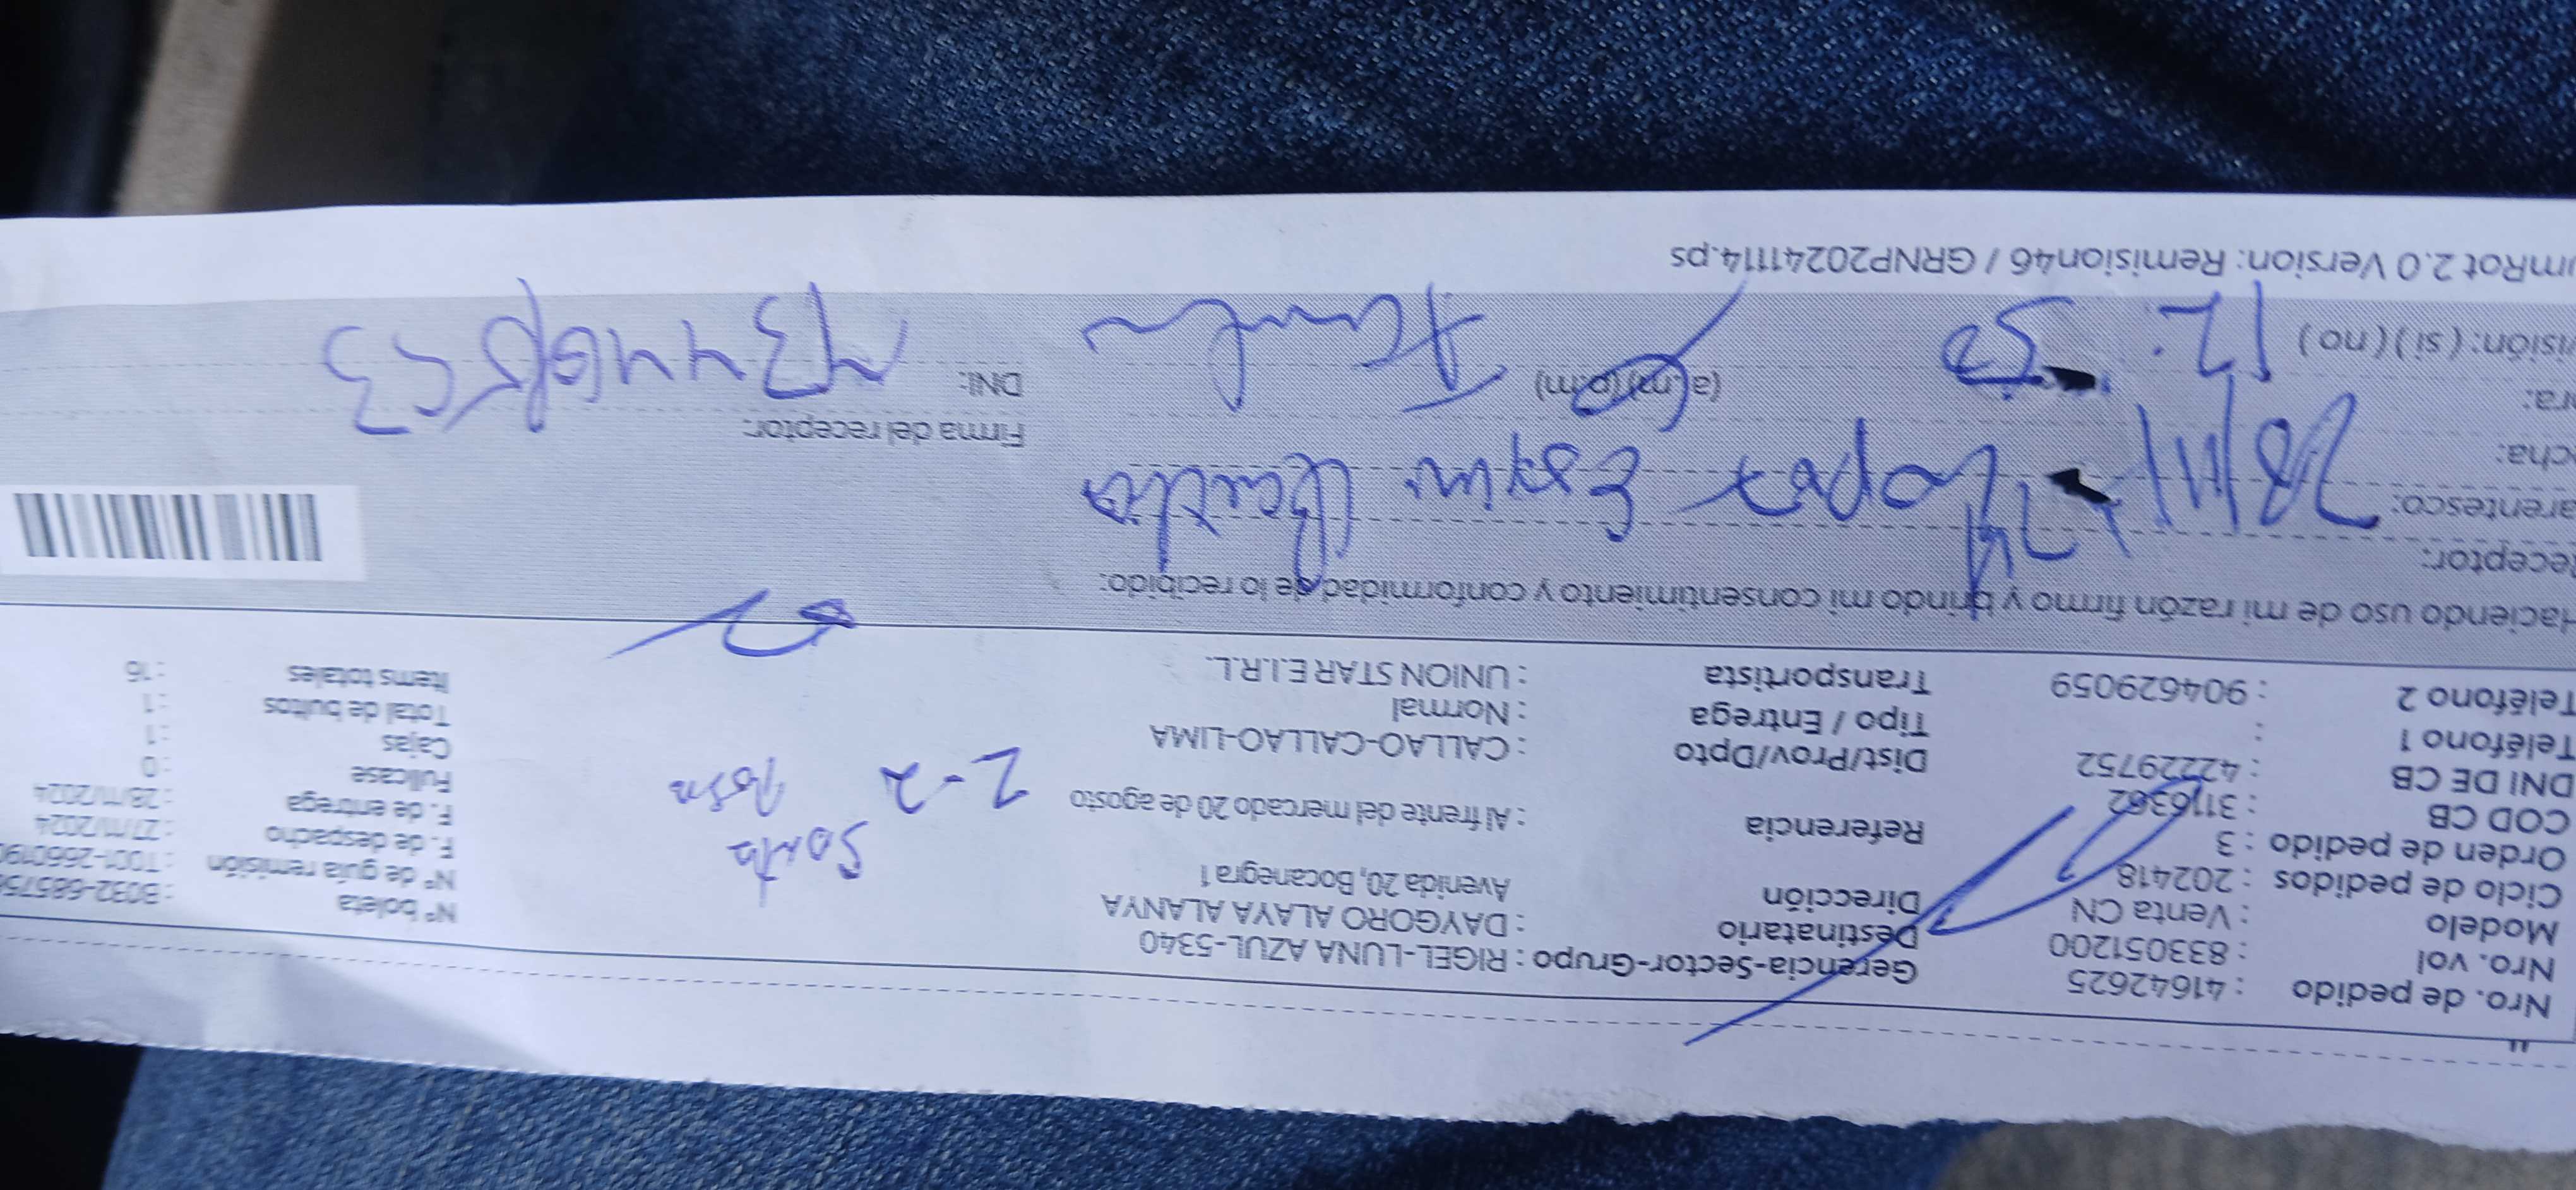 Nro. de pedido : 41642625
Nro. vol : 833051200
Modelo : Venta CN
Ciclo de pedidos : 202418
Orden de pedido : 3
COD CB : 3116362
DNI DE CB : 42229752
Teléfono 1 :
Teléfono 2 : 904629059
Gerencia-Sector-Grupo : RIGEL-LUNA AZUL-5340
Destinatario : DAYGORO ALAYA ALANYA
Dirección Avenida 20, Bocanegra 1
Referencia : Al frente del mercado 20 de agosto
Dist/Prov/Dpto : CALLAO-CALLAO-LIMA
Tipo / Entrega : Normal
Transportista : UNION STAR E.I.R.L.
Santa
Rosa
2-2
N° boleta : B032-68575
N° de guía remisión : T001-266019
F. de despacho : 27/11/2024
F. de entrega : 28/11/2024
Fullcase : 0
Cajas : 1
Total de bultos : 1
Items totales : 16
Haciendo uso de mi razón firmo y brindo mi consentimiento y conformidad de lo recibido:
Receptor:
arentesco: 28/11/24 Lopez
cha:
ora: (a.m) (p.m)
isión: ( si ) ( no ) 12:
Firma del receptor:
DNI:
mRot 2.0 Version: Remision46 / GRNP20241114.ps